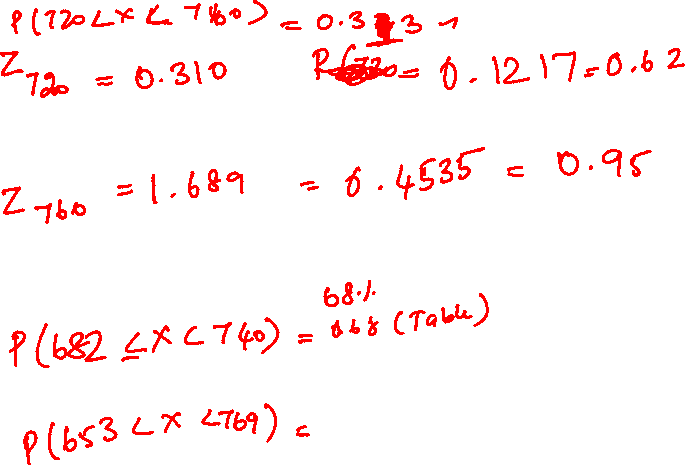 P(720 < X < 760) = 0.33
Z720 = 0.310 = 0.1217 = 0.62
Z760 = 1.689 = 0.4535 = 0.95
68%
P(682 ≤ X < 740) = 0.68 (Table)
P(653 < X < 769) =